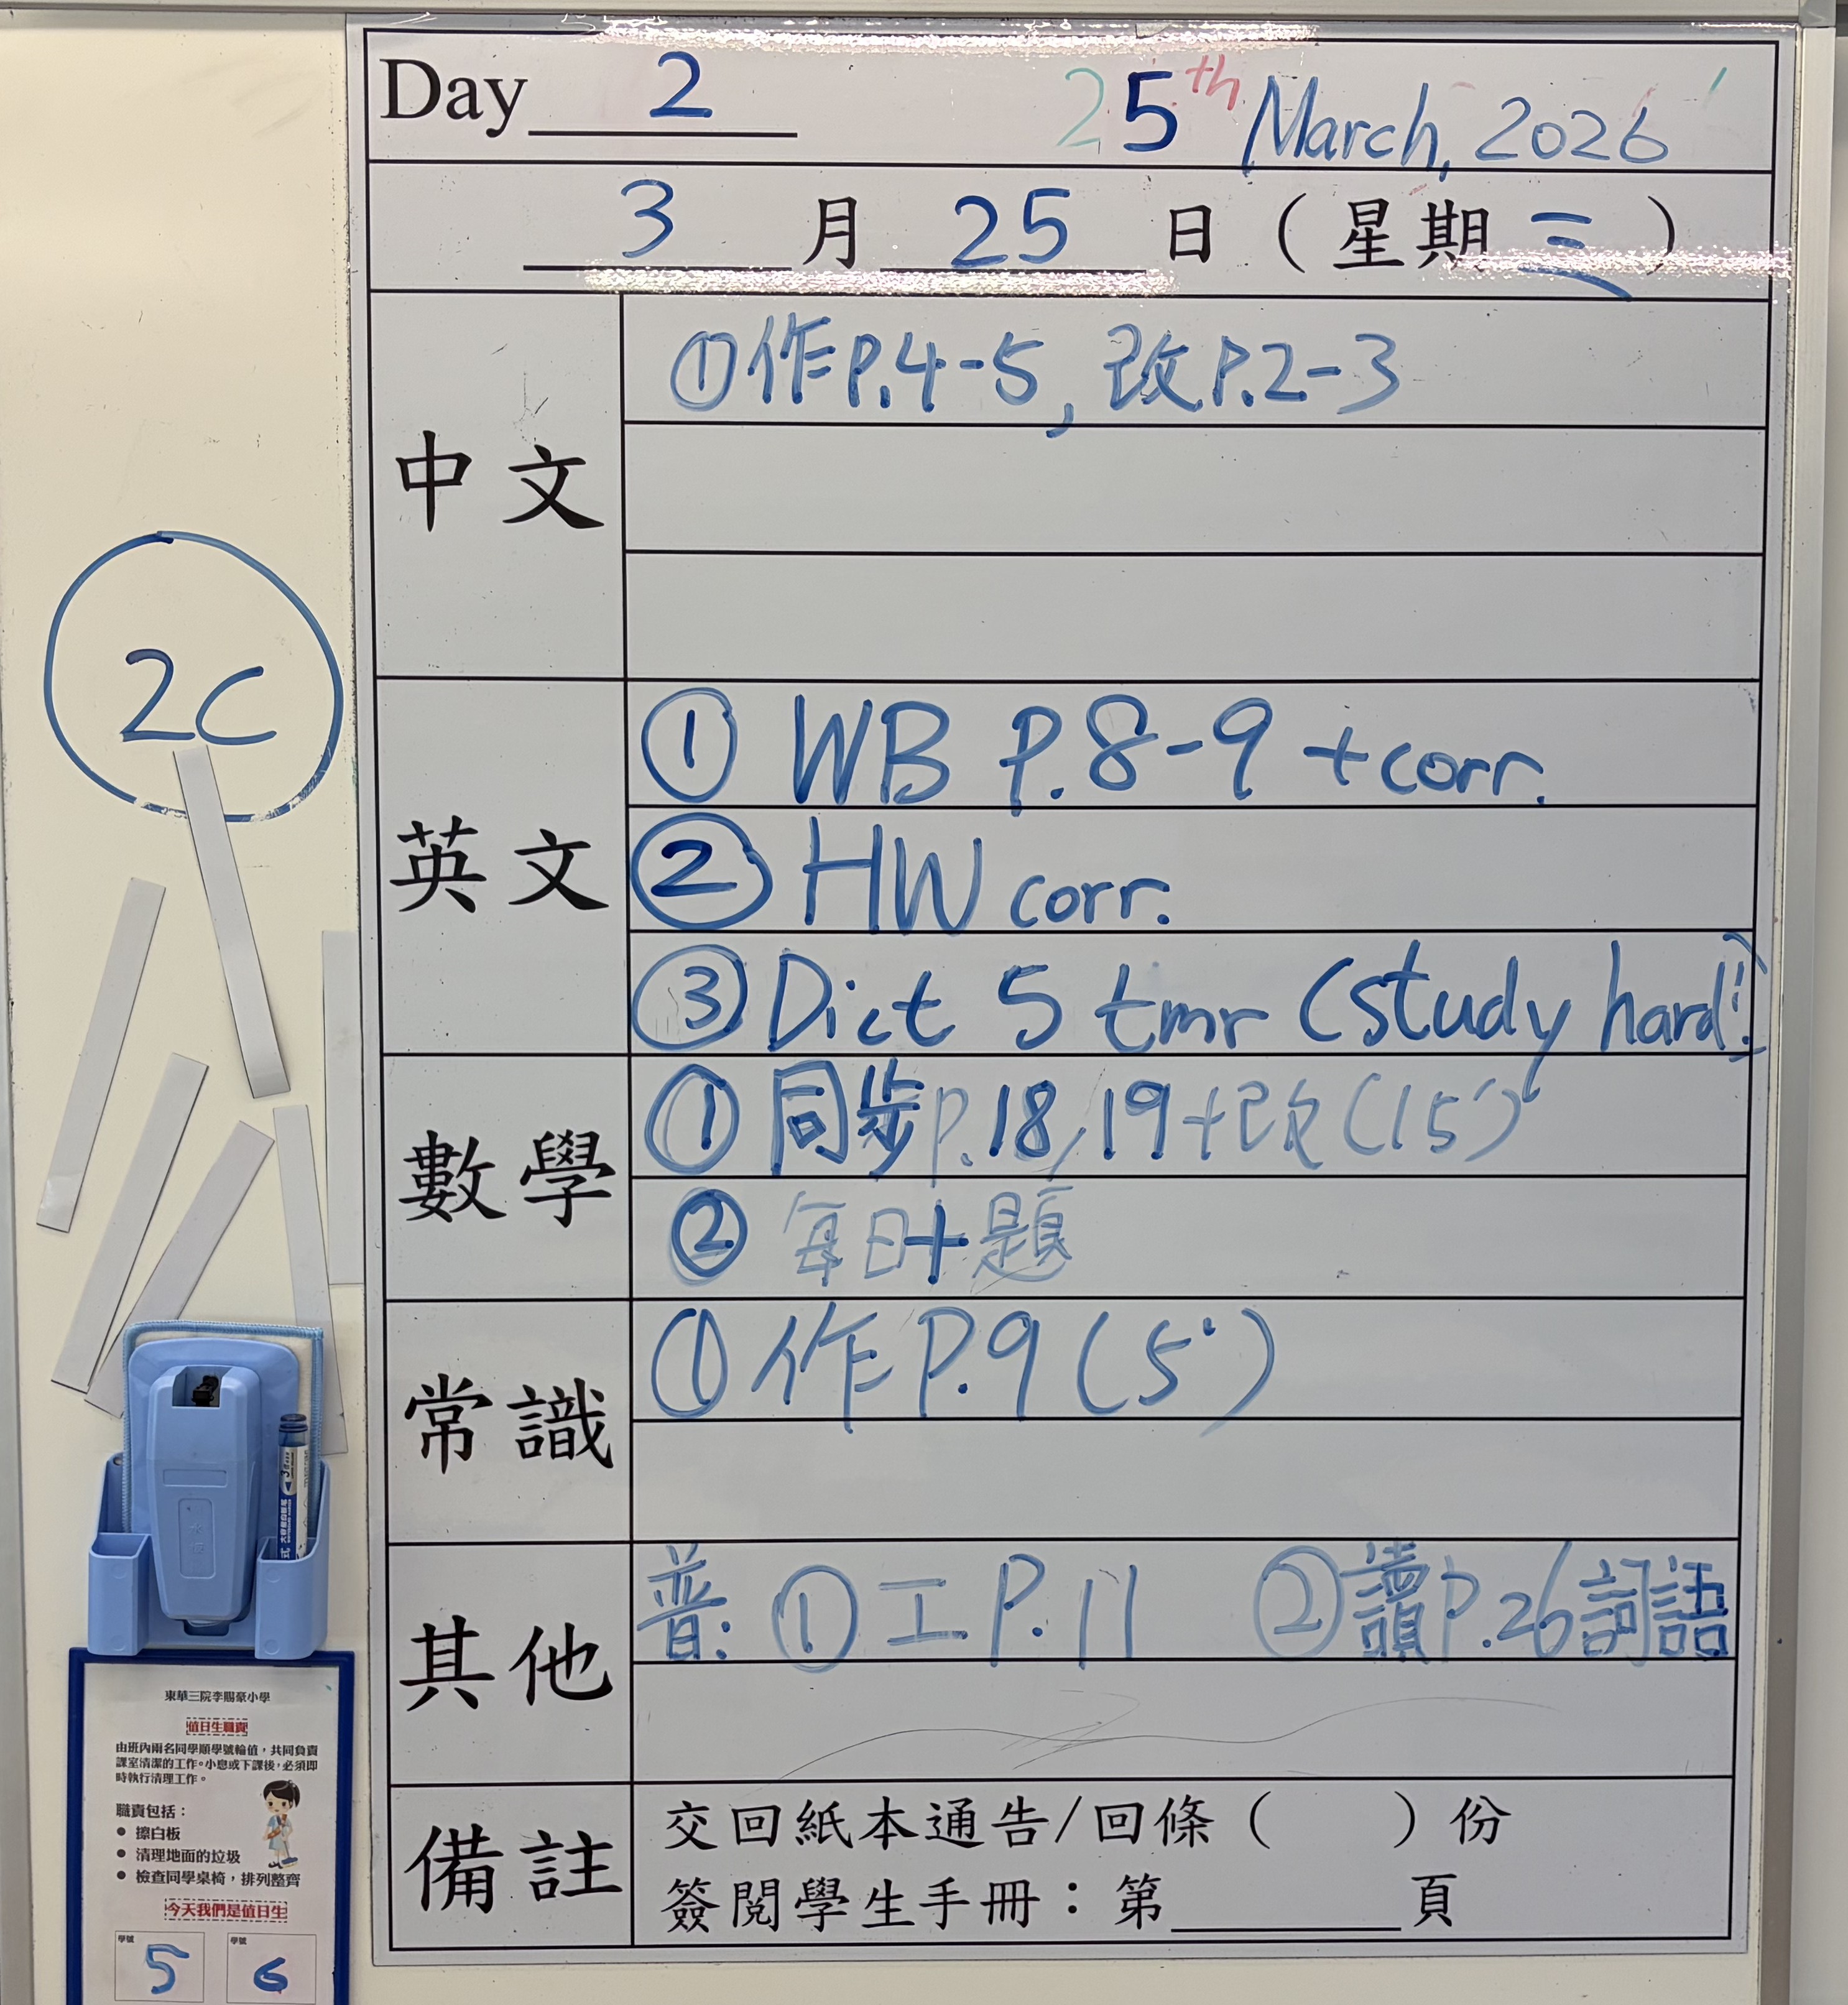 Day 2 25th March, 2026
3 月 25 日（星期三）
中文
①作P.4-5, 改P.2-3
2C
英文
① WB P.8-9 +corr.
② HW corr.
③ Dict 5 tmr (study hard!!)
數學
① 同步P.18,19+改(15')
② 每日十題
常識
① 作P.9 (5')
其他
普: ①工P.11 ②讀P.26詞語
備註
交回紙本通告/回條（ ）份
簽閱學生手冊：第______頁
東華三院李賜豪小學
值日生職責
由班內兩名同學順學號輪值，共同負責
課室清潔的工作。小息或下課後，必須即
時執行清理工作。
職責包括：
• 擦白板
• 清理地面的垃圾
• 檢查同學桌椅，排列整齊
今天我們是值日生
學號 學號
5 6